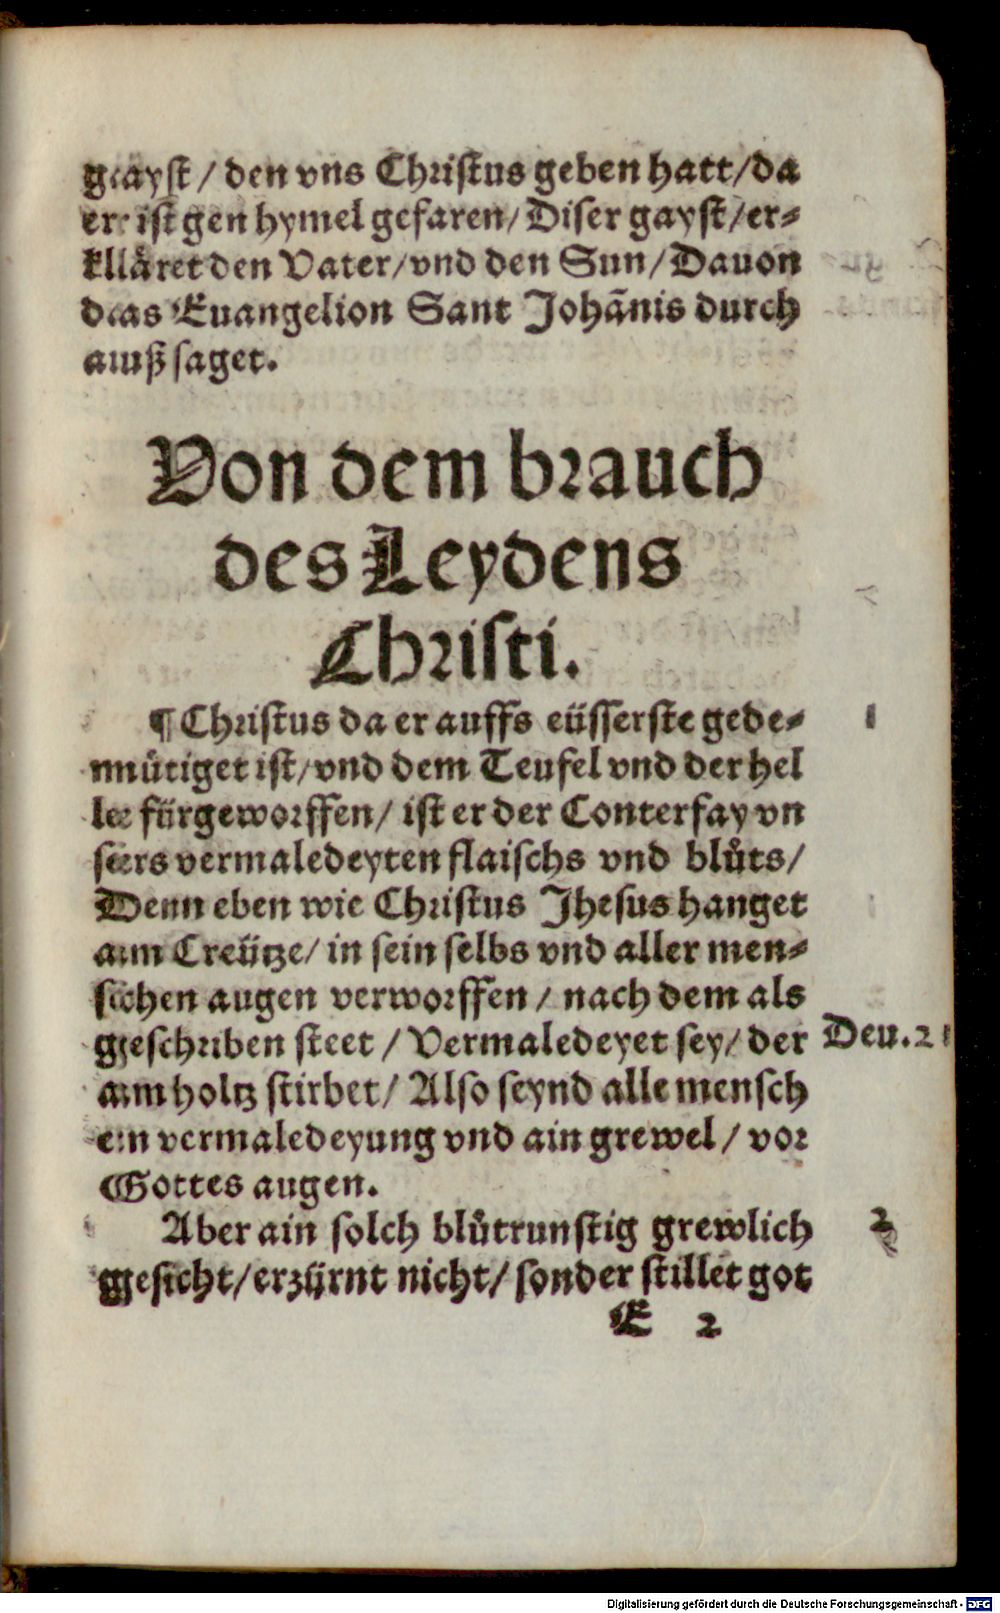 gayst / den vns Christus geben hatt/da
er ist gen hymel gefaren/ Diser gayst/er⸗
kläret den Vater/vnd den Sun/Dauon
das Euangelion Sant Johãnis durch
auß saget.
Von dem brauch
des Leydens
Christi.
¶ Christus da er auffs eüsserste gede⸗ 1
mütiget ist/vnd dem Teufel vnd der hel
le fürgeworffen/ ist er der Conterfay vn
sers vermaledeyten flaischs vnd blůts/
Denn eben wie Christus Jhesus hanget
am Creütze/ in sein selbs vnd aller men⸗
schen augen verworffen / nach dem als
geschriben steet / Vermaledeyet sey/ der Deu.21
am holtz stirbet/ Also seynd alle mensch
en vermaledeyung vnd ain grewel / vor
Gottes augen.
Aber ain solch blůtrunstig grewlich 2
gesicht/erzürnt nicht/ sonder stillet got
E 2
Digitalisierung gefördert durch die Deutsche Forschungsgemeinschaft - DFG